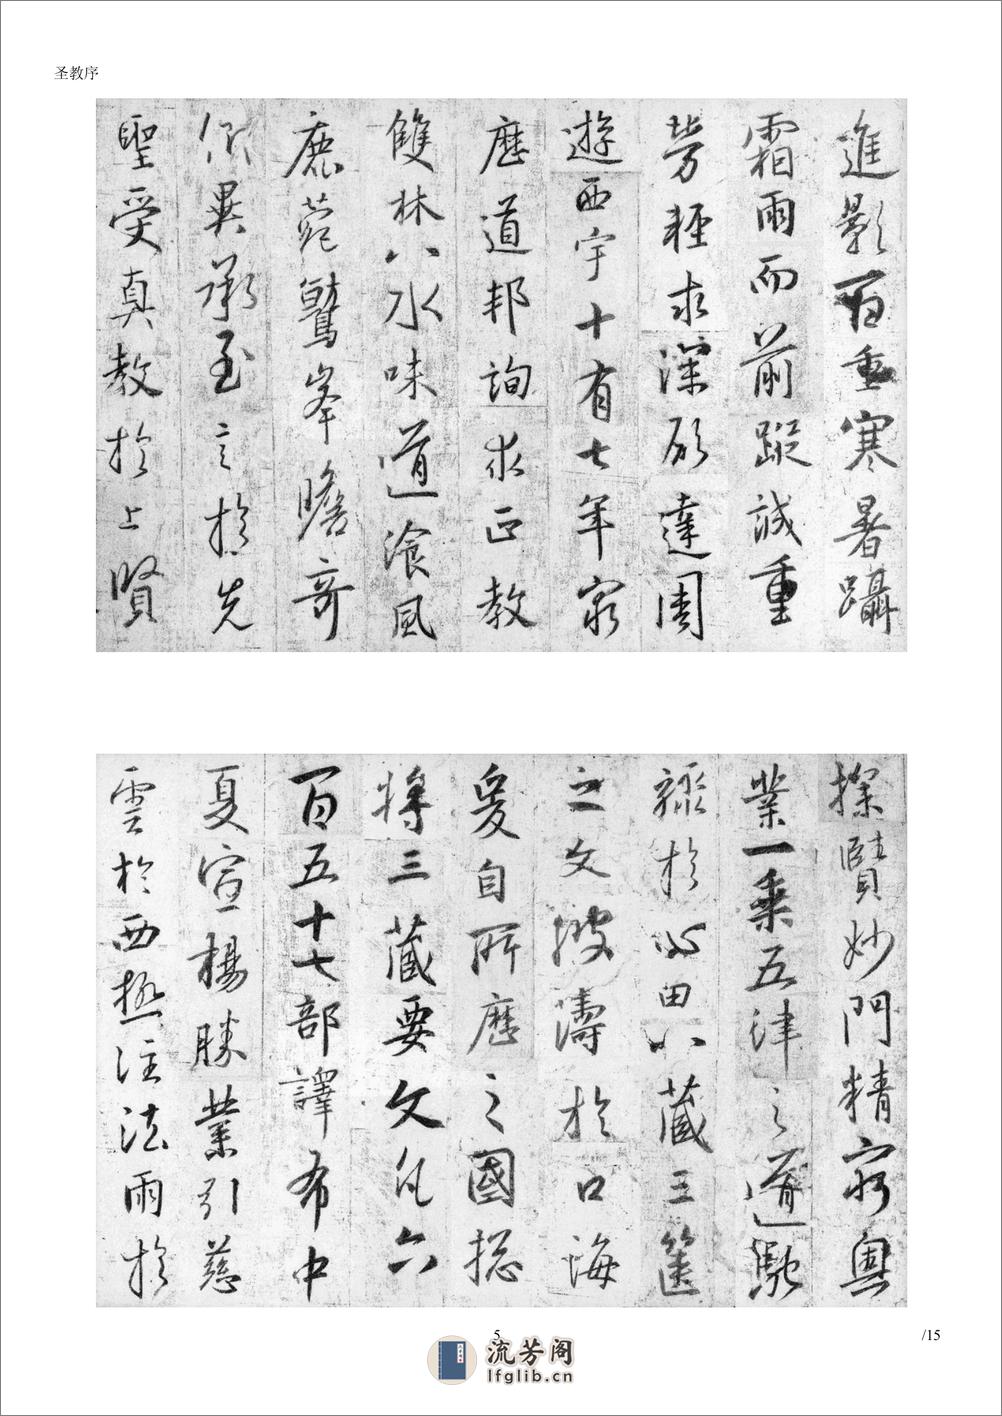 圣教序
進影百重寒暑躡
霜雨而前蹤誠重
勞輕求深願達周
遊西宇十有七年窮
歷道邦詢求正教
雙林八水味道湌風
鹿菀鷲峯瞻奇
仰異承至言於先
聖受真教於上賢
探賾妙門精窮奧
業一乘五律之道馳
驟於心田八藏三篋
之文波濤於口海
爰自所歷之國揔
將三藏要文凡六
百五十七部譯布中
夏宣楊勝業引慈
雲於西極注法雨於
5
/15
流芳阁
lfglib.cn